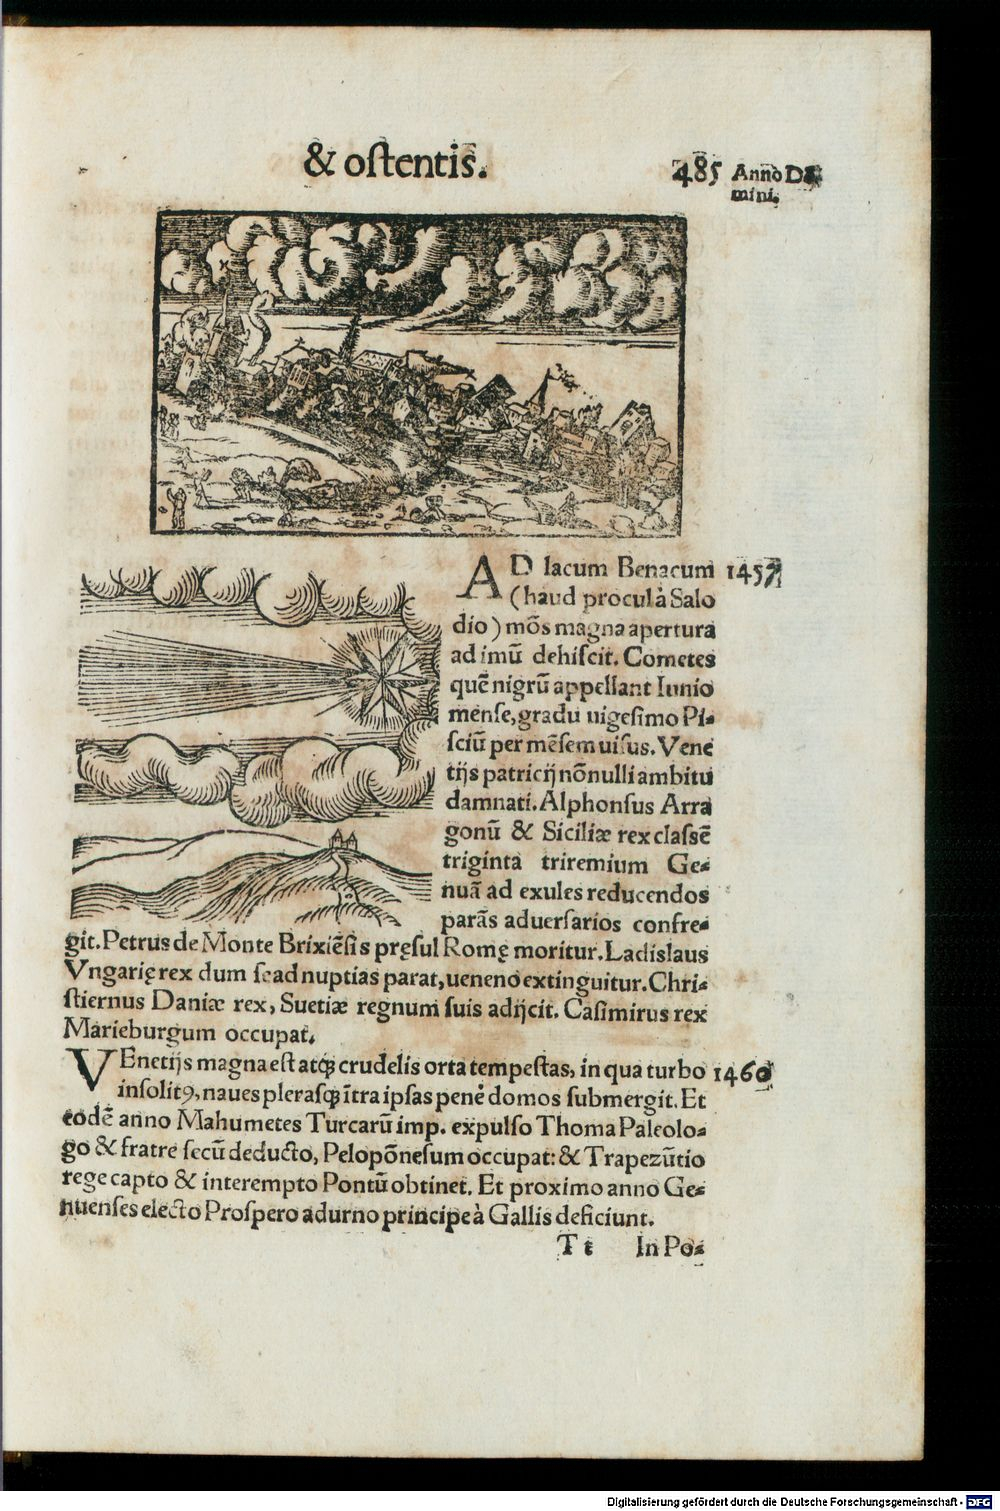 & oſtentis.
485 Anno Do
mini.
AD lacum Benacum 1457
(haud procul à Salo
dio) mōs magna apertura
ad imū dehiſcit. Cometes
quē nigrū appellant Iunio
menſe, gradu uigeſimo Pi⸗
ſciū per mēſem uiſus. Vene
tijs patricij nōnulli ambitu
damnati. Alphonſus Arra
gonū & Siciliæ rex claſſē
triginta triremium Ge⸗
nuā ad exules reducendos
parās aduerſarios confre⸗
git. Petrus de Monte Brixiēſis pręſul Romę moritur. Ladislaus
Vngarię rex dum ſe ad nuptias parat, ueneno extinguitur. Chri⸗
ſtiernus Daniæ rex, Suetiæ regnum ſuis adijcit. Caſimirus rex
Marieburgum occupat.
VEnetijs magna eſt atqꝫ crudelis orta tempeſtas, in qua turbo 1460
inſolitꝰ, naues pleraſqꝫ ītra ipſas penè domos ſubmergit. Et
eodē anno Mahumetes Turcarū imp. expulſo Thoma Paleolo⸗
go & fratre ſecū deducto, Pelopōneſum occupat: & Trapezūtio
rege capto & interempto Pontū obtinet. Et proximo anno Ge⸗
nuenſes electo Proſpero adurno principe à Gallis deficiunt.
Tt In Po⸗
Digitalisierung gefördert durch die Deutsche Forschungsgemeinschaft - DFG